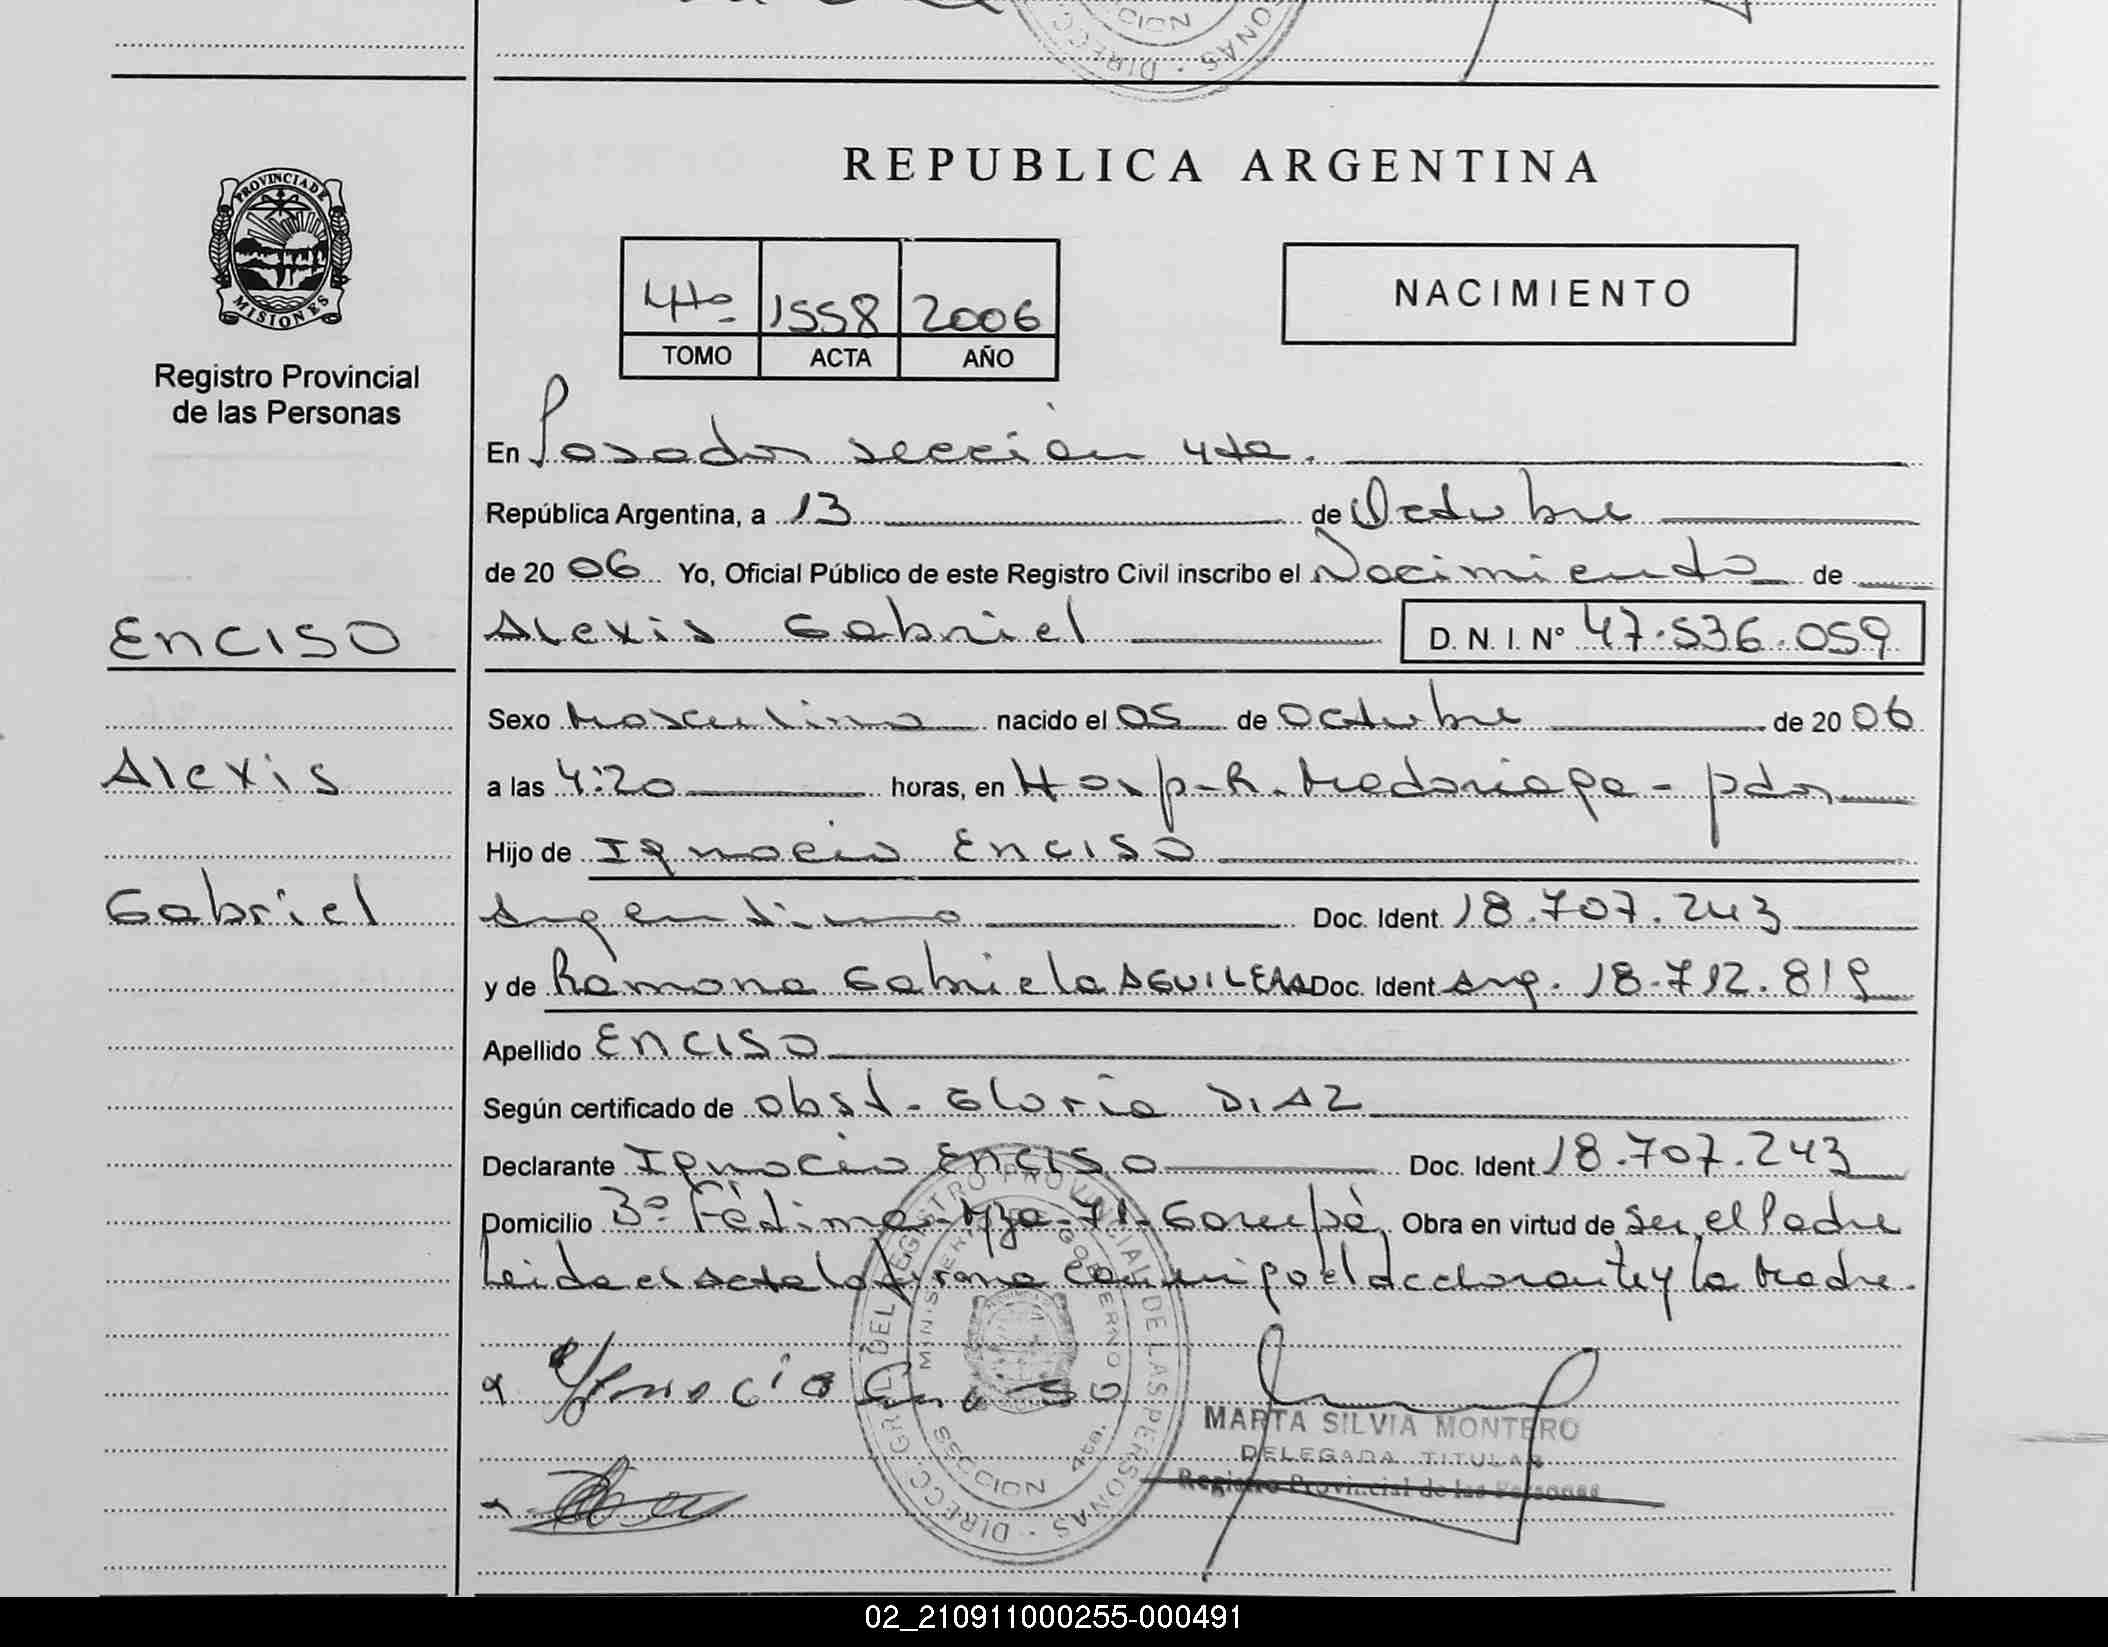 CION
DIRECC
ONAS
REPUBLICA ARGENTINA
PROVINCIA DE
MISIONES
Registro Provincial
de las Personas
4to 1558 2006
TOMO ACTA AÑO
NACIMIENTO
En Posadas sección 4ta.
República Argentina, a 13 de Octubre
de 20 06 Yo, Oficial Público de este Registro Civil inscribo el Nacimiento de
Alexis Gabriel D. N. I. Nº 47.536.059
ENCISO
Alexis
Gabriel
Sexo Masculino nacido el 05 de Octubre de 20 06
a las 4:20 horas, en Hosp-R. Madariaga - pdas
Hijo de Ignacio ENCISO
Argentino Doc. Ident. 18.707.243
y de Ramona Gabriela AGUILERA Doc. Ident. Arg. 18.712.819
Apellido ENCISO
Según certificado de obst. Gloria DIAZ
Declarante Ignacio ENCISO Doc. Ident. 18.707.243
Domicilio 3º Mza-71-Garupá Obra en virtud de ser el Padre
Leida el acta la firma conmigo el declarante y la Madre.
Ignacio Enciso
DIRECC. GRAL DEL REGISTRO PROVINCIAL DE LAS PERSONAS
MINISTERIO GOBIERNO
SECCION 4ta.
MARTA SILVIA MONTERO
DELEGADA TITULAR
Registro Provincial de las Personas
02_210911000255-000491